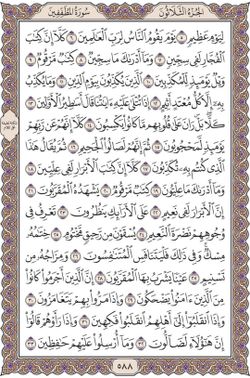 سُورَةُ المُطَفِّفِينَ
الجُزْءُ الثَّلَاثُونَ
لِيَوْمٍ عَظِيمٍ ٥ يَوْمَ يَقُومُ ٱلنَّاسُ لِرَبِّ ٱلْعَٰلَمِينَ ٦ كَلَّآ إِنَّ كِتَٰبَ
ٱلْفُجَّارِ لَفِى سِجِّينٍ ٧ وَمَآ أَدْرَىٰكَ مَا سِجِّينٌ ٨ كِتَٰبٌ مَّرْقُومٌ ٩
وَيْلٌ يَوْمَئِذٍ لِّلْمُكَذِّبِينَ ١٠ ٱلَّذِينَ يُكَذِّبُونَ بِيَوْمِ ٱلدِّينِ ١١ وَمَا يُكَذِّبُ
بِهِۦٓ إِلَّا كُلُّ مُعْتَدٍ أَثِيمٍ ١٢ إِذَا تُتْلَىٰ عَلَيْهِ ءَايَٰتُنَا قَالَ أَسَٰطِيرُ ٱلْأَوَّلِينَ ١٣
كَلَّا بَلْ رَانَ عَلَىٰ قُلُوبِهِم مَّا كَانُوا۟ يَكْسِبُونَ ١٤ كَلَّآ إِنَّهُمْ عَن رَّبِّهِمْ
يَوْمَئِذٍ لَّمَحْجُوبُونَ ١٥ ثُمَّ إِنَّهُمْ لَصَالُوا۟ ٱلْجَحِيمِ ١٦ ثُمَّ يُقَالُ هَٰذَا
ٱلَّذِى كُنتُم بِهِۦ تُكَذِّبُونَ ١٧ كَلَّآ إِنَّ كِتَٰبَ ٱلْأَبْرَارِ لَفِى عِلِّيِّينَ ١٨
وَمَآ أَدْرَىٰكَ مَا عِلِّيُّونَ ١٩ كِتَٰبٌ مَّرْقُومٌ ٢٠ يَشْهَدُهُ ٱلْمُقَرَّبُونَ ٢١
إِنَّ ٱلْأَبْرَارَ لَفِى نَعِيمٍ ٢٢ عَلَى ٱلْأَرَآئِكِ يَنظُرُونَ ٢٣ تَعْرِفُ فِى
وُجُوهِهِمْ نَضْرَةَ ٱلنَّعِيمِ ٢٤ يُسْقَوْنَ مِن رَّحِيقٍ مَّخْتُومٍ ٢٥ خِتَٰمُهُۥ
مِسْكٌ وَفِى ذَٰلِكَ فَلْيَتَنَافَسِ ٱلْمُتَنَٰفِسُونَ ٢٦ وَمِزَاجُهُۥ مِن
تَسْنِيمٍ ٢٧ عَيْنًا يَشْرَبُ بِهَا ٱلْمُقَرَّبُونَ ٢٨ إِنَّ ٱلَّذِينَ أَجْرَمُوا۟ كَانُوا۟
مِنَ ٱلَّذِينَ ءَامَنُوا۟ يَضْحَكُونَ ٢٩ وَإِذَا مَرُّوا۟ بِهِمْ يَتَغَامَزُونَ ٣٠
وَإِذَا ٱنقَلَبُوٓا۟ إِلَىٰٓ أَهْلِهِمُ ٱنقَلَبُوا۟ فَكِهِينَ ٣١ وَإِذَا رَأَوْهُمْ قَالُوٓا۟
إِنَّ هَٰٓؤُلَآءِ لَضَآلُّونَ ٣٢ وَمَآ أُرْسِلُوا۟ عَلَيْهِمْ حَٰفِظِينَ ٣٣
٥٨٨